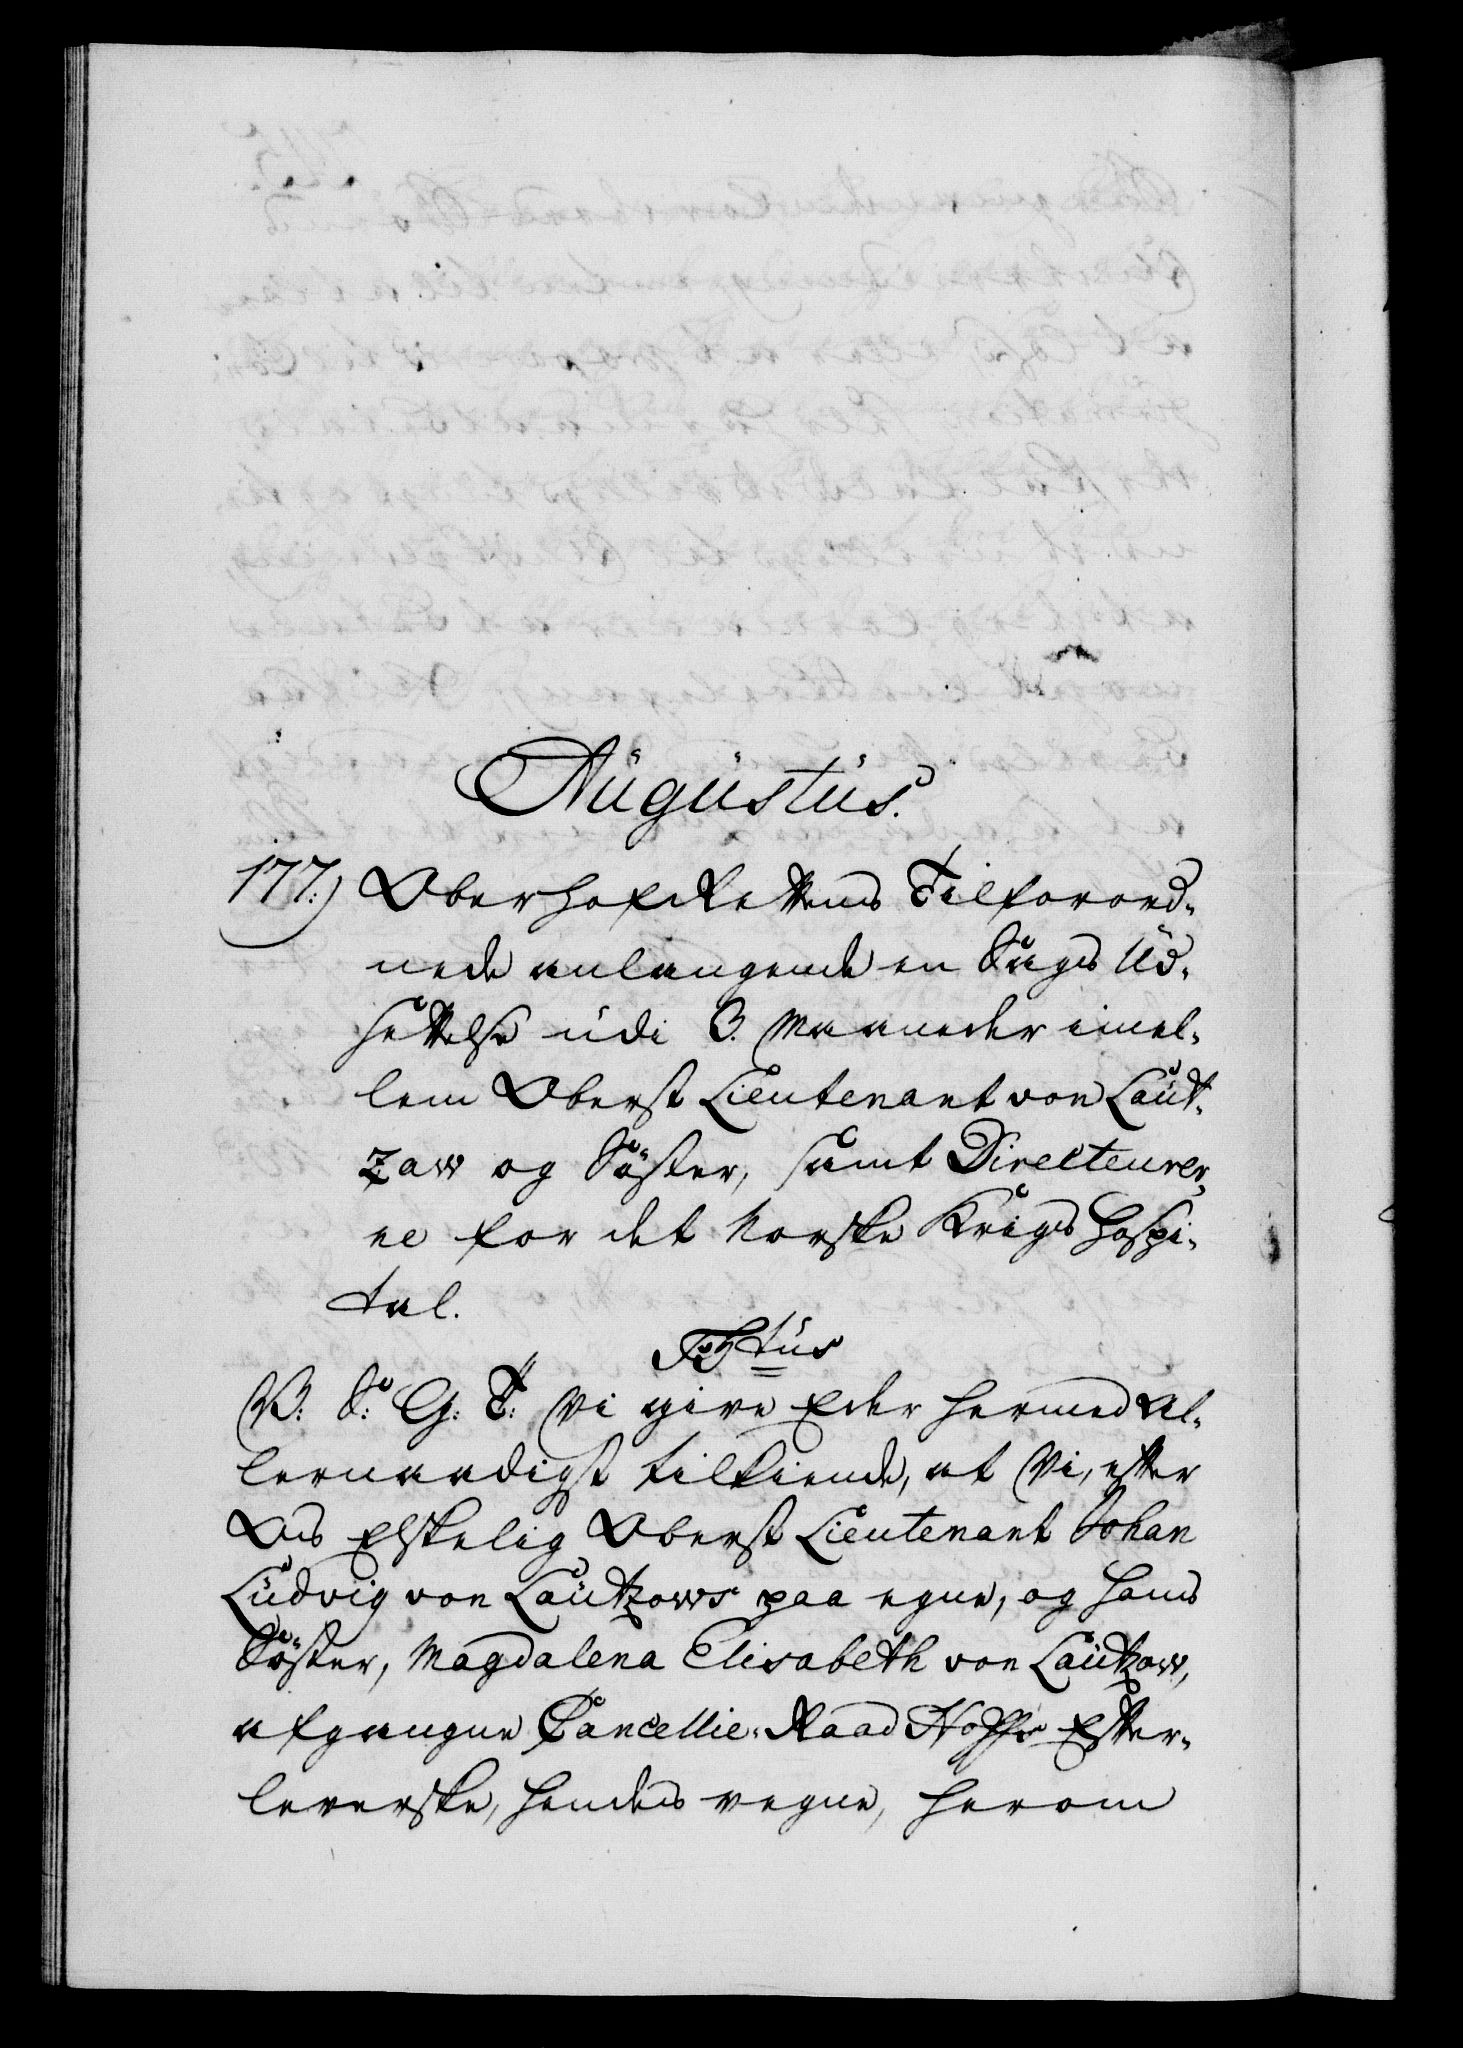 Augustus.
177.) Oberhofrettens Tilforord-
nede anlangende en Sags Ud-
settelse udi 3. Maaneder imel-
lem Oberst Lieutenant von Laut-
zaw og Söster, samt Directeurer-
ne for det Norske Krigs Hospi-
tal.
V. S. G. T. Vi give Eder hermed Al-
lernaadigst tilkiende, at Vi, efter
Os Elskelig Oberst Lieutenant Johan
Ludvig von Lautzows paa egne, og hans
Söster, Magdalena Elisabeth von Lautzow,
afgangne Cancellie-Raad Efter-
leverske, hendes vegne, herom